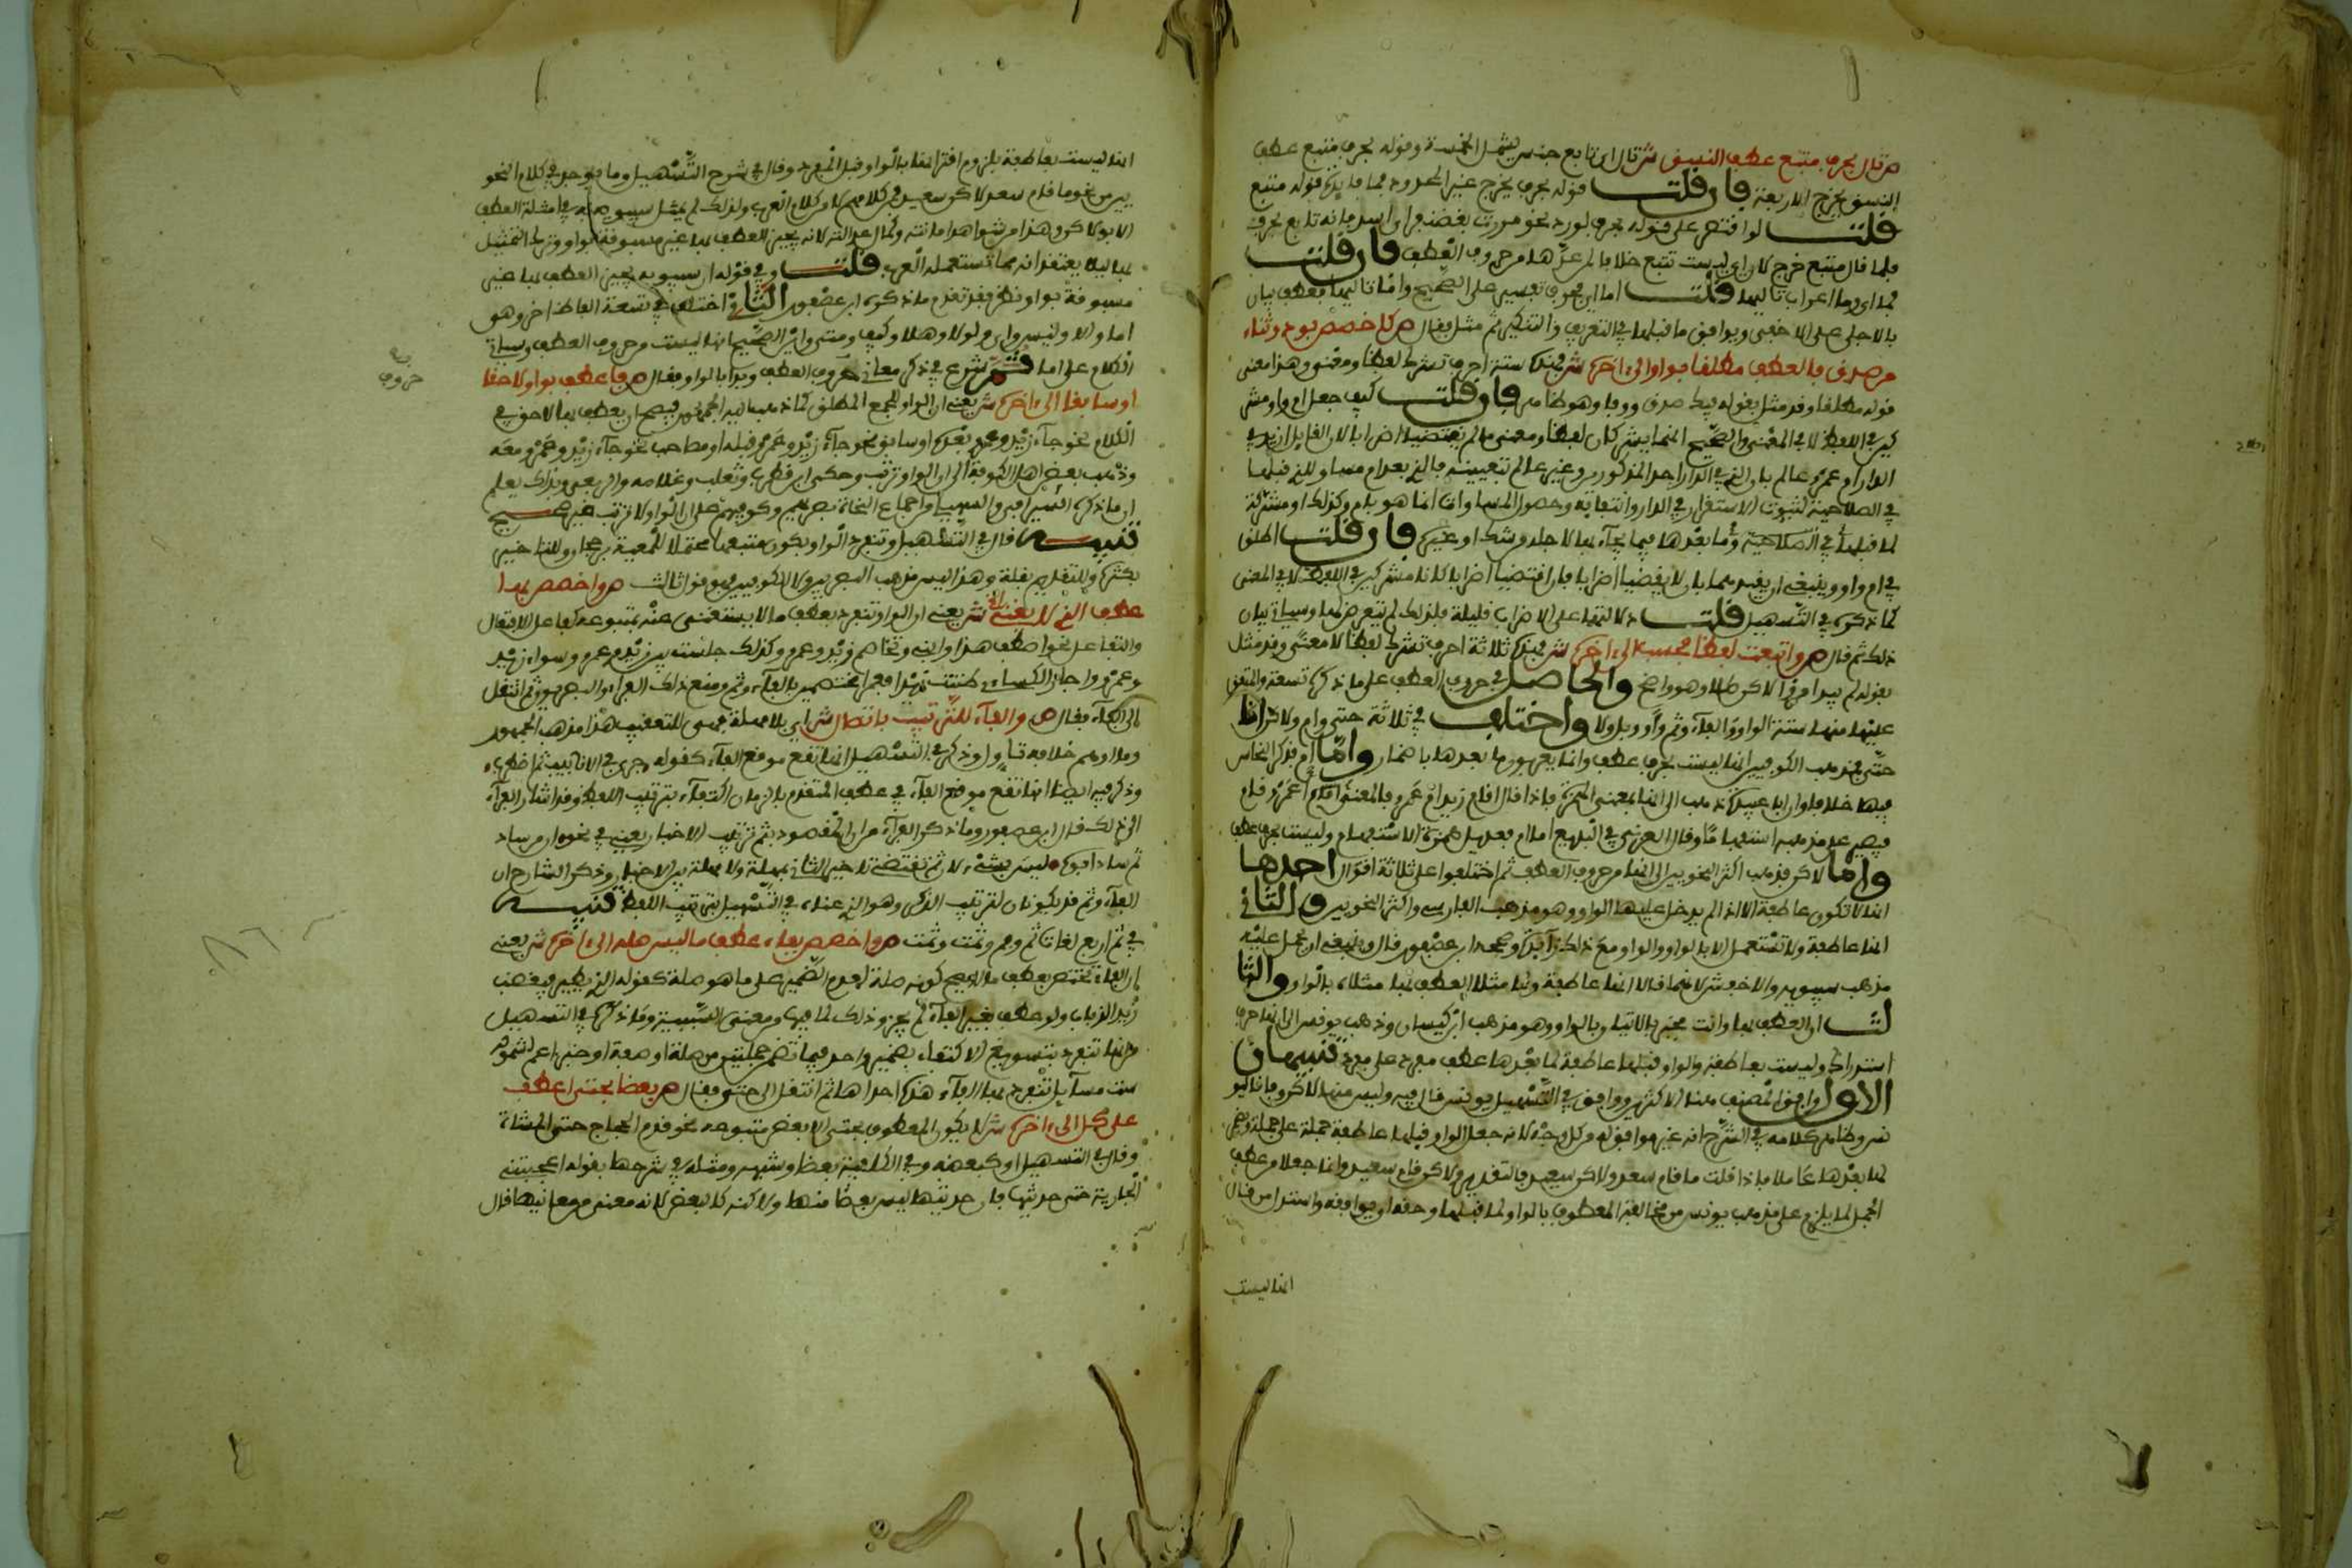 ص تال بحرف متبع عطف النسق ش تال اي تابع جنس يشمل الخمسة وقوله بحرف متبع عطف
النسق يخرج الاربعة فان قلت قوله بحرف يخرج غير المحدود فما فايدة قوله متبع
قلت لو اقتصر على قوله بحرف لورد نحو مررت بغضنفر اي اسد فانه تابع بحرف
فلما قال متبع خرج لان اي ليست تتبع خلافا لمن عدها من حروف العطف فان قلت
فما اي وما اعراب تاليها قلت اما اي فحرف تفسير على الصحيح واما تاليها فعطف بيان
بالاجلى على الاخفى ويوافق ما قبلها في التعريف والتنكير ثم مثل فقال ص كاخصص بود وثناء
من صدق فالعطف مطلقا بواو الى اخره ش فهذه ستة احرف تشرك لفظا ومعنى وهذا معنى
قوله مطلقا وقد مثل بقوله فيك صدق ووفا وهو ظاهر فان قلت كيف جعل ام واو مشر
كين في اللفظ لا في المعنى والصحيح انهما يشركان لفظا ومعنى ما لم يقتضيا اضرابا لان القايل ازيد في
الدار ام عمرو عالم بان الذي في الدار احد المذكورين وغير عالم بتعيينه فالذي بعد ام مساو للذي قبلها
في الصلاحية لثبوت الاستقرار في الدار وانتفايه وحصول المساواة انما هو بام وكذلك او مشركة
لما قبلها في الصلاحية وما بعدها فيما يجاء بها لاجله من شك او غيره فان قلت اطلق
في ام واو وينبغي ان يقيدهما بان لا يقتضيا اضرابا فان اقتضيا اضرابا كانا مشركين في اللفظ لا في المعنى
كما ذكره في التسهيل قلت دلالتهما على الاضراب قليلة فلذلك لم يتعرض لها وسياتي بيان
ذلك ثم قال ص واتبعت لفظا فحسب الى اخره ش فهذه ثلاثة احرف تشرك لفظا لا معنى وقد مثل
بقوله لم يبد امرؤ لاكن طلا وهو واضح والحاصل ان حروف العطف على ما ذكره تسعة والمتفق
عليه منها ستة الواو والفاء وثم واو وبل ولا واختلف في ثلاثة حتى وام ولاكن اما
حتى فمذهب الكوفيين انها ليست بحرف عطف وانما يعربون ما بعدها باضمار واما ام فذكر النحاس
فيها خلافا وان ابا عبيدة ذهب الى انها بمعنى الهمزة فاذا قال اقام زيد ام عمرو فالمعنى اقام ام عمرو قام
فيصير على مذهبه استفهاما وقال الغزني في البديع ام عديل همزة الاستفهام وليست بحرف عطف
واما لاكن فذهب اكثر النحويين الى انها من حروف العطف ثم اختلفوا على ثلاثة اقوال احدها
انها لا تكون عاطفة الا اذا لم يدخل عليها الواو وهو مذهب الفارسي واكثر النحويين والثاني
انها عاطفة ولا تستعمل الا بالواو والواو مع ذلك زايدة وصححه ابن عصفور قال وينبغي ان يحمل عليه
مذهب سيبويه والاخفش لانهما قالا انها عاطفة ولما مثلا العطف بها مثلاه بالواو والثا
لث ان العطف بها وانت مخير بالاتيان بالواو وهو مذهب ابن كيسان وذهب يونس الى انها حرف
استدراك وليست بعاطفة والواو قبلها عاطفة لما بعدها عطف مفرد على مفرد تنبيهان
الاول وافق المصنف هنا الاكثرين ووافق في التسهيل يونس فقال فيه وليس منها لاكن وفاقا ليو
نس وظاهر كلامه في الشرح انه غير موافق له من كل وجه لانه جعل الواو قبلها عاطفة جملة على جملة
لما بعدها عاملا فاذا قلت ما قام سعد ولاكن سعيد فالتقدير ولاكن قام سعيد وانما جعله من عطف
الجمل لما يلزم على مذهب يونس من مخالفة المعطوف بالواو لما قبلها وحقه ان يوافقه واستدل من قال
انها ليست
انها ليست بعاطفة بلزوم اقترانها بالواو قبل المفرد وقال في شرح التسهيل وما يوجد في كلام النحو
يين من نحو ما قام سعد لاكن سعيد فمن كلامهم لا من كلام العرب ولذلك لم يمثل سيبويه في امثلة العطف
الا بولاكن وهذا من شواهد امانته وكمال عدالته لانه يجيز العطف بها غير مسبوقة بواو وترك التمثيل
بها ليلا يعتقد انه مما تستعمله العرب قلت وفي قوله ان سيبويه يجيز العطف بها غير
مسبوقة بواو نظر فقد تقدم ما ذكره ابن عصفور الثاني اختلف في تسعة الفاظ اخر وهو
اما والا وليس واي ولولا وهلا وكيف ومتى واين الصحيح انها ليست من حروف العطف وسياتي
الكلام على اما ثم شرع في ذكر معاني حروف العطف وبدا بالواو فقال ص فاعطف بواو لاحقا
او سابقا الى اخره ش يعني ان الواو للجمع المطلق كما ذهب اليه الجمهور فيصح ان يعطف بها لاحق في
الكلام نحو جاء زيد وعمرو بعده او سابق نحو جاء زيد وعمرو قبله او مصاحب نحو جاء زيد وعمرو معه
وذهب بعض اهل الكوفة الى ان الواو ترتب وحكي عن قطرب وثعلب وغلامه والربعي وبذلك يعلم
ان ما ذكره السيرافي والسهيلي من اجماع النحاة بصريهم وكوفيهم على ان الواو لا ترتب غير صحيح
تنبيه قال في التسهيل وتنفرد الواو بكون متبعها محتملا للمعية برجحان وللتاخير
بكثرة وللتقديم بقلة وهذا ليس مذهب البصريين ولا الكوفيين بل هو قول ثالث ص واخصص بها
عطف الذي لا يغني ش يعني ان الواو تنفرد بعطف ما لا يستغنى عنه بمتبوعه كفاعل الافتعال
والتفاعل نحو اصطف هذا وابني وتخاصم زيد وعمرو وكذلك جلست بين زيد وعمرو وسواء زيد
وعمرو واجاز الكساءي ظننت زيدا وعمرا مختصمين بالفاء وثم ومنع ذلك الفراء والبصريون ثم انتقل
الى الفاء فقال ص والفاء للترتيب باتصال ش اي بلا مهلة فهي للتعقيب هذا مذهب الجمهور
وما اوهم خلافه تاول وذكر في التسهيل انها تقع موقع الفاء كقوله جرى في الانابيب ثم اضطرب
وذكر فيه ايضا انها تقع موقع الفاء في عطف المتقدم بالزمان اكتفاء بترتيب اللفظ وقد اشار الفراء
الى ذلك قال ابن عصفور وما ذكره الفراء من ان المقصود بثم ترتيب الاخبار يعني في نحو ان من ساد
ثم ساد ابوه ليس بشيء لان ثم تقتضي تاخير الثاني بمهلة ولا مهلة بين الاخبار وذكر الشارح ان
الفاء وثم قد يكونان لترتيب الذكر وهو الذي عناه في التسهيل بترتيب اللفظ تنبيه
في ثم اربع لغات ثم وفم وثمت وثمت ص واخصص بفاء عطف ما ليس صله الى اخره ش يعني
ان الفاء تختص بعطف ما لا يصح كونه صلة لعدم الضمير على ما هو صلة كقوله الذي يطير فيغضب
زيد الذباب ولو عطف بغير الفاء لم يجز وذلك لما فيها من معنى السببية وقد ذكر في التسهيل
انها تنفرد بتسويغ الاكتفاء بضمير واحد فيما تضمن جملتين من صلة او صفة او خبر اعم لشموله
ست مسايل تنفرد بها الفاء هذه احداها ثم انتقل الى حتى فقال ص بعضا بحتى اعطف
على كل الى اخره ش لا يكون المعطوف بحتى الا بعض متبوعه نحو قدم الحجاج حتى المشاة
وقال في التسهيل او كبعضه وفي الكافية بعضا وشبهه ومثله في شرحها بقوله اعجبتني
الجارية حتى حديثها فان حديثها ليس بعضا منها ولاكنه كالبعض لانه معنى من معانيها قال
حروف